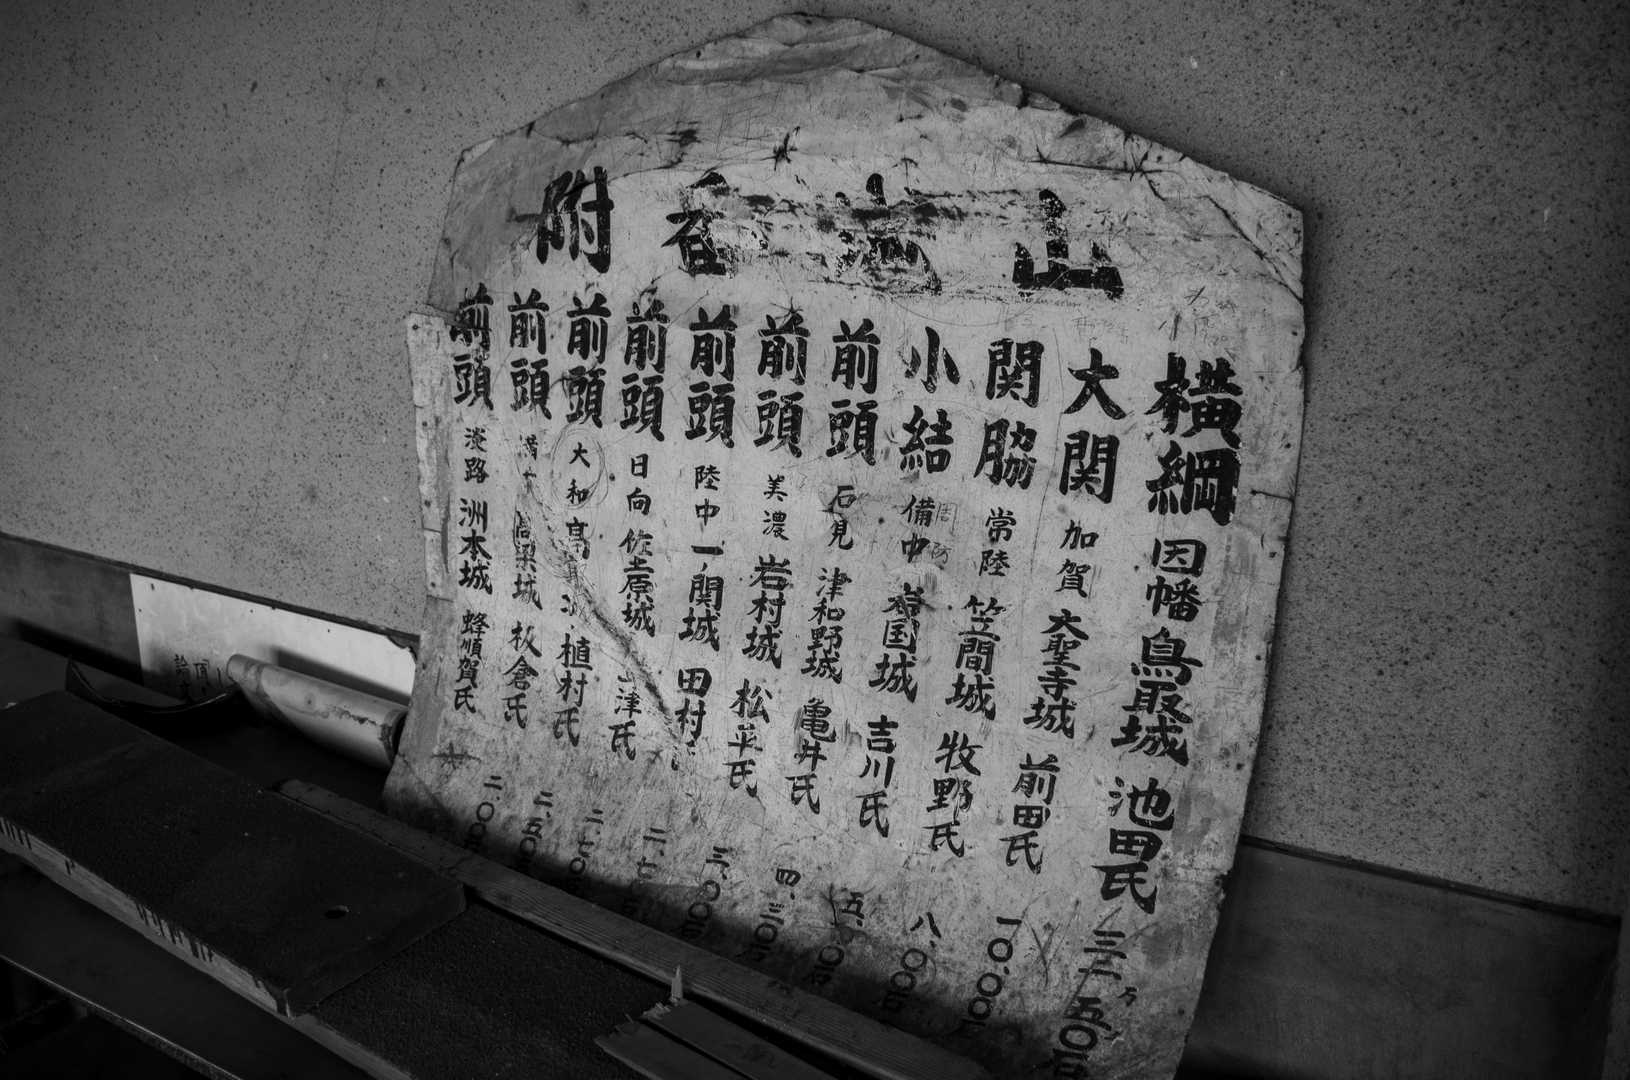 山城番附
横綱 因幡 鳥取城 池田氏 三二万五〇〇石
大関 加賀 大聖寺城 前田氏
関脇 常陸 笠間城 牧野氏 一〇.〇〇〇石
小結 備中 岩国城 吉川氏 八.〇〇〇石
前頭 石見 津和野城 亀井氏 五.〇〇石
前頭 美濃 岩村城 松平氏 四.三〇〇石
前頭 陸中 一関城 田村氏 三.〇〇〇石
前頭 日向 佐土原城 津氏 二.七
前頭 大和 高取城 植村氏 二.七〇〇
前頭 備中 高梁城 板倉氏 二.五〇
前頭 淡路 洲本城 蜂順賀氏 二.〇〇